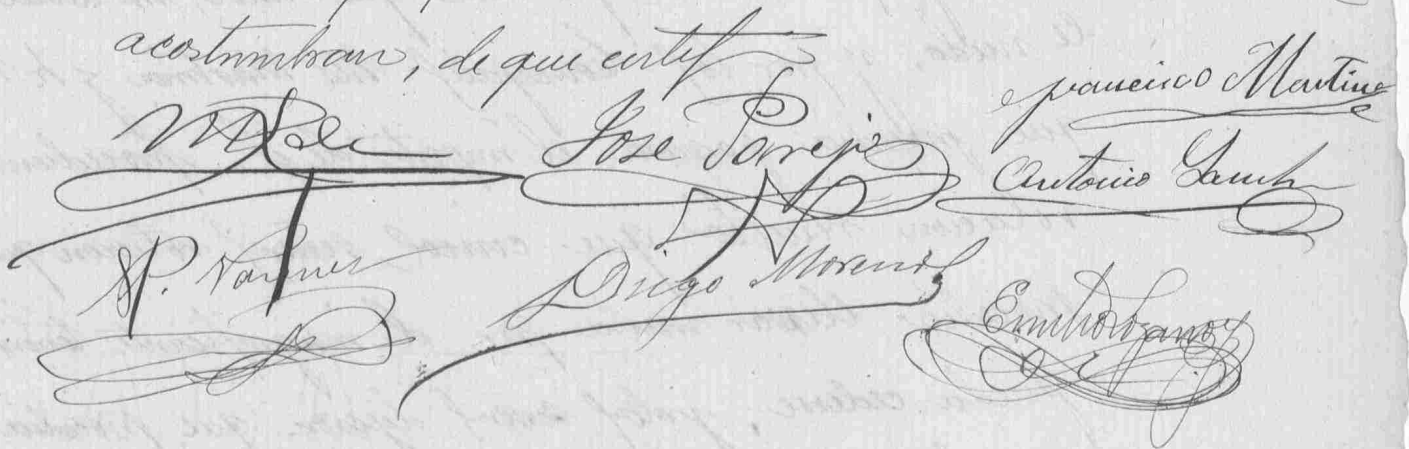 acostumbran, de que certif
Jose Parejo
Francisco Martinez
Antonio Sanch
P.
Diego Moreno
Emilio Lozano